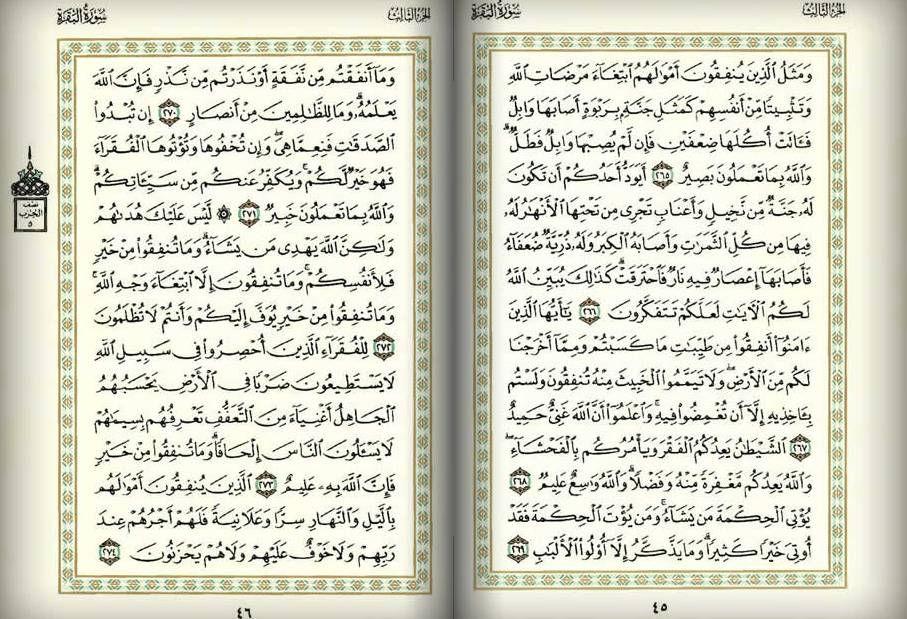 الجزء الثالث
سورة البقرة
وَمَثَلُ ٱلَّذِينَ يُنفِقُونَ أَمۡوَٰلَهُمُ ٱبۡتِغَآءَ مَرۡضَاتِ ٱللَّهِ
وَتَثۡبِيتٗا مِّنۡ أَنفُسِهِمۡ كَمَثَلِ جَنَّةِۭ بِرَبۡوَةٍ أَصَابَهَا وَابِلٞ
فَـَٔاتَتۡ أُكُلَهَا ضِعۡفَيۡنِ فَإِن لَّمۡ يُصِبۡهَا وَابِلٞ فَطَلّٞۗ
وَٱللَّهُ بِمَا تَعۡمَلُونَ بَصِيرٌ ٢٦٥ أَيَوَدُّ أَحَدُكُمۡ أَن تَكُونَ
لَهُۥ جَنَّةٞ مِّن نَّخِيلٖ وَأَعۡنَابٖ تَجۡرِي مِن تَحۡتِهَا ٱلۡأَنۡهَٰرُ لَهُۥ
فِيهَا مِن كُلِّ ٱلثَّمَرَٰتِ وَأَصَابَهُ ٱلۡكِبَرُ وَلَهُۥ ذُرِّيَّةٞ ضُعَفَآءُ
فَأَصَابَهَآ إِعۡصَارٞ فِيهِ نَارٞ فَٱحۡتَرَقَتۡۗ كَذَٰلِكَ يُبَيِّنُ ٱللَّهُ
لَكُمُ ٱلۡأٓيَٰتِ لَعَلَّكُمۡ تَتَفَكَّرُونَ ٢٦٦ يَٰٓأَيُّهَا ٱلَّذِينَ
ءَامَنُوٓاْ أَنفِقُواْ مِن طَيِّبَٰتِ مَا كَسَبۡتُمۡ وَمِمَّآ أَخۡرَجۡنَا
لَكُم مِّنَ ٱلۡأَرۡضِۖ وَلَا تَيَمَّمُواْ ٱلۡخَبِيثَ مِنۡهُ تُنفِقُونَ وَلَسۡتُم
بِـَٔاخِذِيهِ إِلَّآ أَن تُغۡمِضُواْ فِيهِۚ وَٱعۡلَمُوٓاْ أَنَّ ٱللَّهَ غَنِيٌّ حَمِيدٌ
٢٦٧ ٱلشَّيۡطَٰنُ يَعِدُكُمُ ٱلۡفَقۡرَ وَيَأۡمُرُكُم بِٱلۡفَحۡشَآءِۖ
وَٱللَّهُ يَعِدُكُم مَّغۡفِرَةٗ مِّنۡهُ وَفَضۡلٗاۗ وَٱللَّهُ وَٰسِعٌ عَلِيمٞ ٢٦٨
يُؤۡتِي ٱلۡحِكۡمَةَ مَن يَشَآءُۚ وَمَن يُؤۡتَ ٱلۡحِكۡمَةَ فَقَدۡ
أُوتِيَ خَيۡرٗا كَثِيرٗاۗ وَمَا يَذَّكَّرُ إِلَّآ أُوْلُواْ ٱلۡأَلۡبَٰبِ ٢٦٩
٤٥
الجزء الثالث
سورة البقرة
وَمَآ أَنفَقۡتُم مِّن نَّفَقَةٍ أَوۡ نَذَرۡتُم مِّن نَّذۡرٖ فَإِنَّ ٱللَّهَ
يَعۡلَمُهُۥۗ وَمَا لِلظَّٰلِمِينَ مِنۡ أَنصَارٍ ٢٧٠ إِن تُبۡدُواْ
ٱلصَّدَقَٰتِ فَنِعِمَّا هِيَۖ وَإِن تُخۡفُوهَا وَتُؤۡتُوهَا ٱلۡفُقَرَآءَ
فَهُوَ خَيۡرٞ لَّكُمۡۚ وَيُكَفِّرُ عَنكُم مِّن سَيِّـَٔاتِكُمۡۗ
وَٱللَّهُ بِمَا تَعۡمَلُونَ خَبِيرٞ ٢٧١ ۞ لَّيۡسَ عَلَيۡكَ هُدَىٰهُمۡ
وَلَٰكِنَّ ٱللَّهَ يَهۡدِي مَن يَشَآءُۗ وَمَا تُنفِقُواْ مِنۡ خَيۡرٖ
فَلِأَنفُسِكُمۡۚ وَمَا تُنفِقُونَ إِلَّا ٱبۡتِغَآءَ وَجۡهِ ٱللَّهِۚ
وَمَا تُنفِقُواْ مِنۡ خَيۡرٖ يُوَفَّ إِلَيۡكُمۡ وَأَنتُمۡ لَا تُظۡلَمُونَ
٢٧٢ لِلۡفُقَرَآءِ ٱلَّذِينَ أُحۡصِرُواْ فِي سَبِيلِ ٱللَّهِ
لَا يَسۡتَطِيعُونَ ضَرۡبٗا فِي ٱلۡأَرۡضِ يَحۡسَبُهُمُ
ٱلۡجَاهِلُ أَغۡنِيَآءَ مِنَ ٱلتَّعَفُّفِ تَعۡرِفُهُم بِسِيمَٰهُمۡ
لَا يَسۡـَٔلُونَ ٱلنَّاسَ إِلۡحَافٗاۗ وَمَا تُنفِقُواْ مِنۡ خَيۡرٖ
فَإِنَّ ٱللَّهَ بِهِۦ عَلِيمٌ ٢٧٣ ٱلَّذِينَ يُنفِقُونَ أَمۡوَٰلَهُم
بِٱلَّيۡلِ وَٱلنَّهَارِ سِرّٗا وَعَلَانِيَةٗ فَلَهُمۡ أَجۡرُهُمۡ عِندَ
رَبِّهِمۡ وَلَا خَوۡفٌ عَلَيۡهِمۡ وَلَا هُمۡ يَحۡزَنُونَ ٢٧٤
٤٦
نصف
الحزب
٥